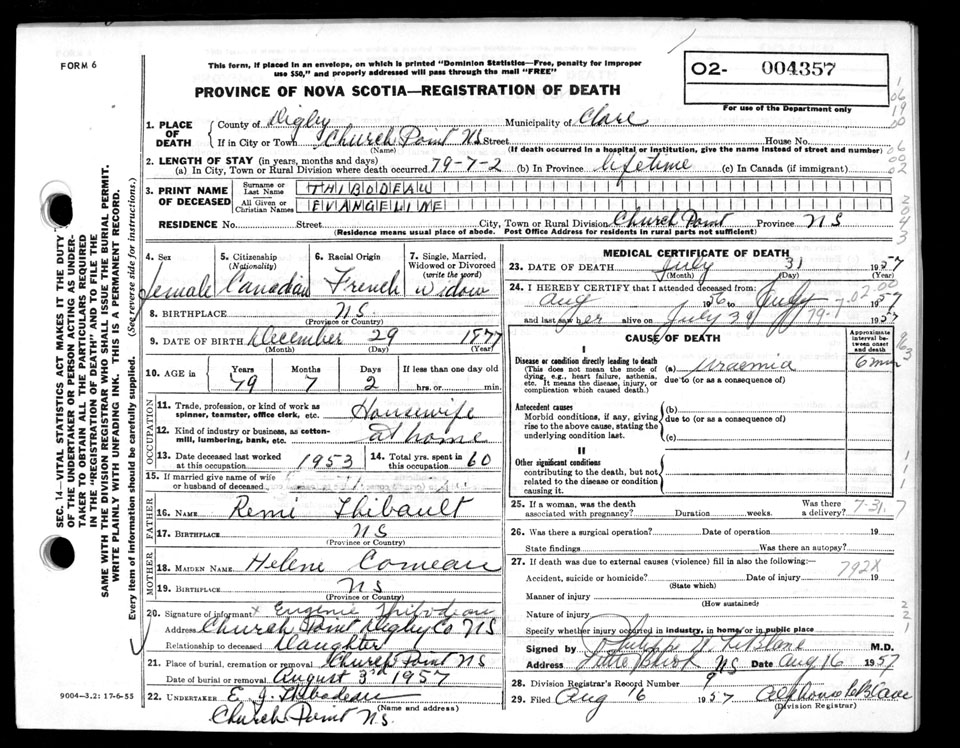 FORM 6
This form, if placed in an envelope, on which is printed "Dominion Statistics—Free, penalty for improper
use $50," and properly addressed will pass through the mail "FREE"
02- 004357
For use of the Department only
PROVINCE OF NOVA SCOTIA—REGISTRATION OF DEATH
1. PLACE OF DEATH { County of Digby Municipality of Clare
If in City or Town Church Point NS Street House No.
(Name) (If death occurred in a hospital or institution, give the name instead of street and number)
2. LENGTH OF STAY (in years, months and days)
(a) In City, Town or Rural Division where death occurred 79-7-2 (b) In Province lifetime (c) In Canada (if immigrant)
3. PRINT NAME OF DECEASED { Surname or Last Name THIBODEAU
All Given or Christian Names EVANGELINE
RESIDENCE No. Street City, Town or Rural Division Church Point Province NS
(Residence means usual place of abode. Post Office Address for residents in rural parts not sufficient)
4. Sex female
5. Citizenship (Nationality) Canadian
6. Racial Origin French
7. Single, Married, Widowed or Divorced (write the word) Widow
8. BIRTHPLACE NS.
(Province or Country)
9. DATE OF BIRTH December 29 1877
(Month) (Day) (Year)
10. AGE in Years Months Days If less than one day old
79 7 2 hrs. or min.
OCCUPATION
11. Trade, profession, or kind of work as spinner, teamster, office clerk, etc. Housewife
12. Kind of industry or business, as cotton-mill, lumbering, bank, etc. at home
13. Date deceased last worked at this occupation 1953
14. Total yrs. spent in this occupation 60
15. If married give name of wife or husband of deceased
FATHER
16. NAME Remi Thibault
17. BIRTHPLACE NS
(Province or Country)
MOTHER
18. MAIDEN NAME Helene Comeau
19. BIRTHPLACE NS
(Province or Country)
20. Signature of informant x Eugenie Thibodeau
Address Church Point Digby Co NS
Relationship to deceased Daughter
21. Place of burial, cremation or removal Church Point NS
Date of burial or removal August 3rd 1957
22. UNDERTAKER E. J. Thibodeau
(Name and address)
Church Point NS.
9004-3,2: 17-6-55
MEDICAL CERTIFICATE OF DEATH
23. DATE OF DEATH July 31 1957
(Month) (Day) (Year)
24. I HEREBY CERTIFY that I attended deceased from
Aug 1956 to July 1957
and last saw her alive on July 31 1957
CAUSE OF DEATH
Approximate interval between onset and death
I
Disease or condition directly leading to death
(This does not mean the mode of dying, e.g., heart failure, asthenia, etc. It means the disease, injury, or complication which caused death.)
(a) Uraemia
due to (or as a consequence of)
Antecedent causes
Morbid conditions, if any, giving rise to the above cause, stating the underlying condition last.
(b)
due to (or as a consequence of)
(c)
II
Other significant conditions
contributing to the death, but not related to the disease or condition causing it.
25. If a woman, was the death associated with pregnancy? Duration weeks. Was there a delivery? 7-31.7
26. Was there a surgical operation? Date of operation 19
State findings Was there an autopsy?
27. If death was due to external causes (violence) fill in also the following:—
Accident, suicide or homicide? Date of injury 19
792X
(State which)
Manner of injury
(How sustained)
Nature of injury
Specify whether injury occurred in industry, in home, or in public place
Signed by LeBlanc M.D.
Address Little Brook NS Date Aug 16 1957
28. Division Registrar's Record Number 9
29. Filed Aug 16 1957 Alphonse LeBlanc
(Division Registrar)
SEC. 14—VITAL STATISTICS ACT MAKES IT THE DUTY
OF THE UNDERTAKER OR PERSON ACTING AS UNDER-
TAKER TO OBTAIN ALL THE PARTICULARS REQUIRED
IN THE "REGISTRATION OF DEATH" AND TO FILE THE
SAME WITH THE DIVISION REGISTRAR WHO SHALL ISSUE THE BURIAL PERMIT.
WRITE PLAINLY WITH UNFADING INK. THIS IS A PERMANENT RECORD.
Every item of information should be carefully supplied. (See reverse side for instructions.)